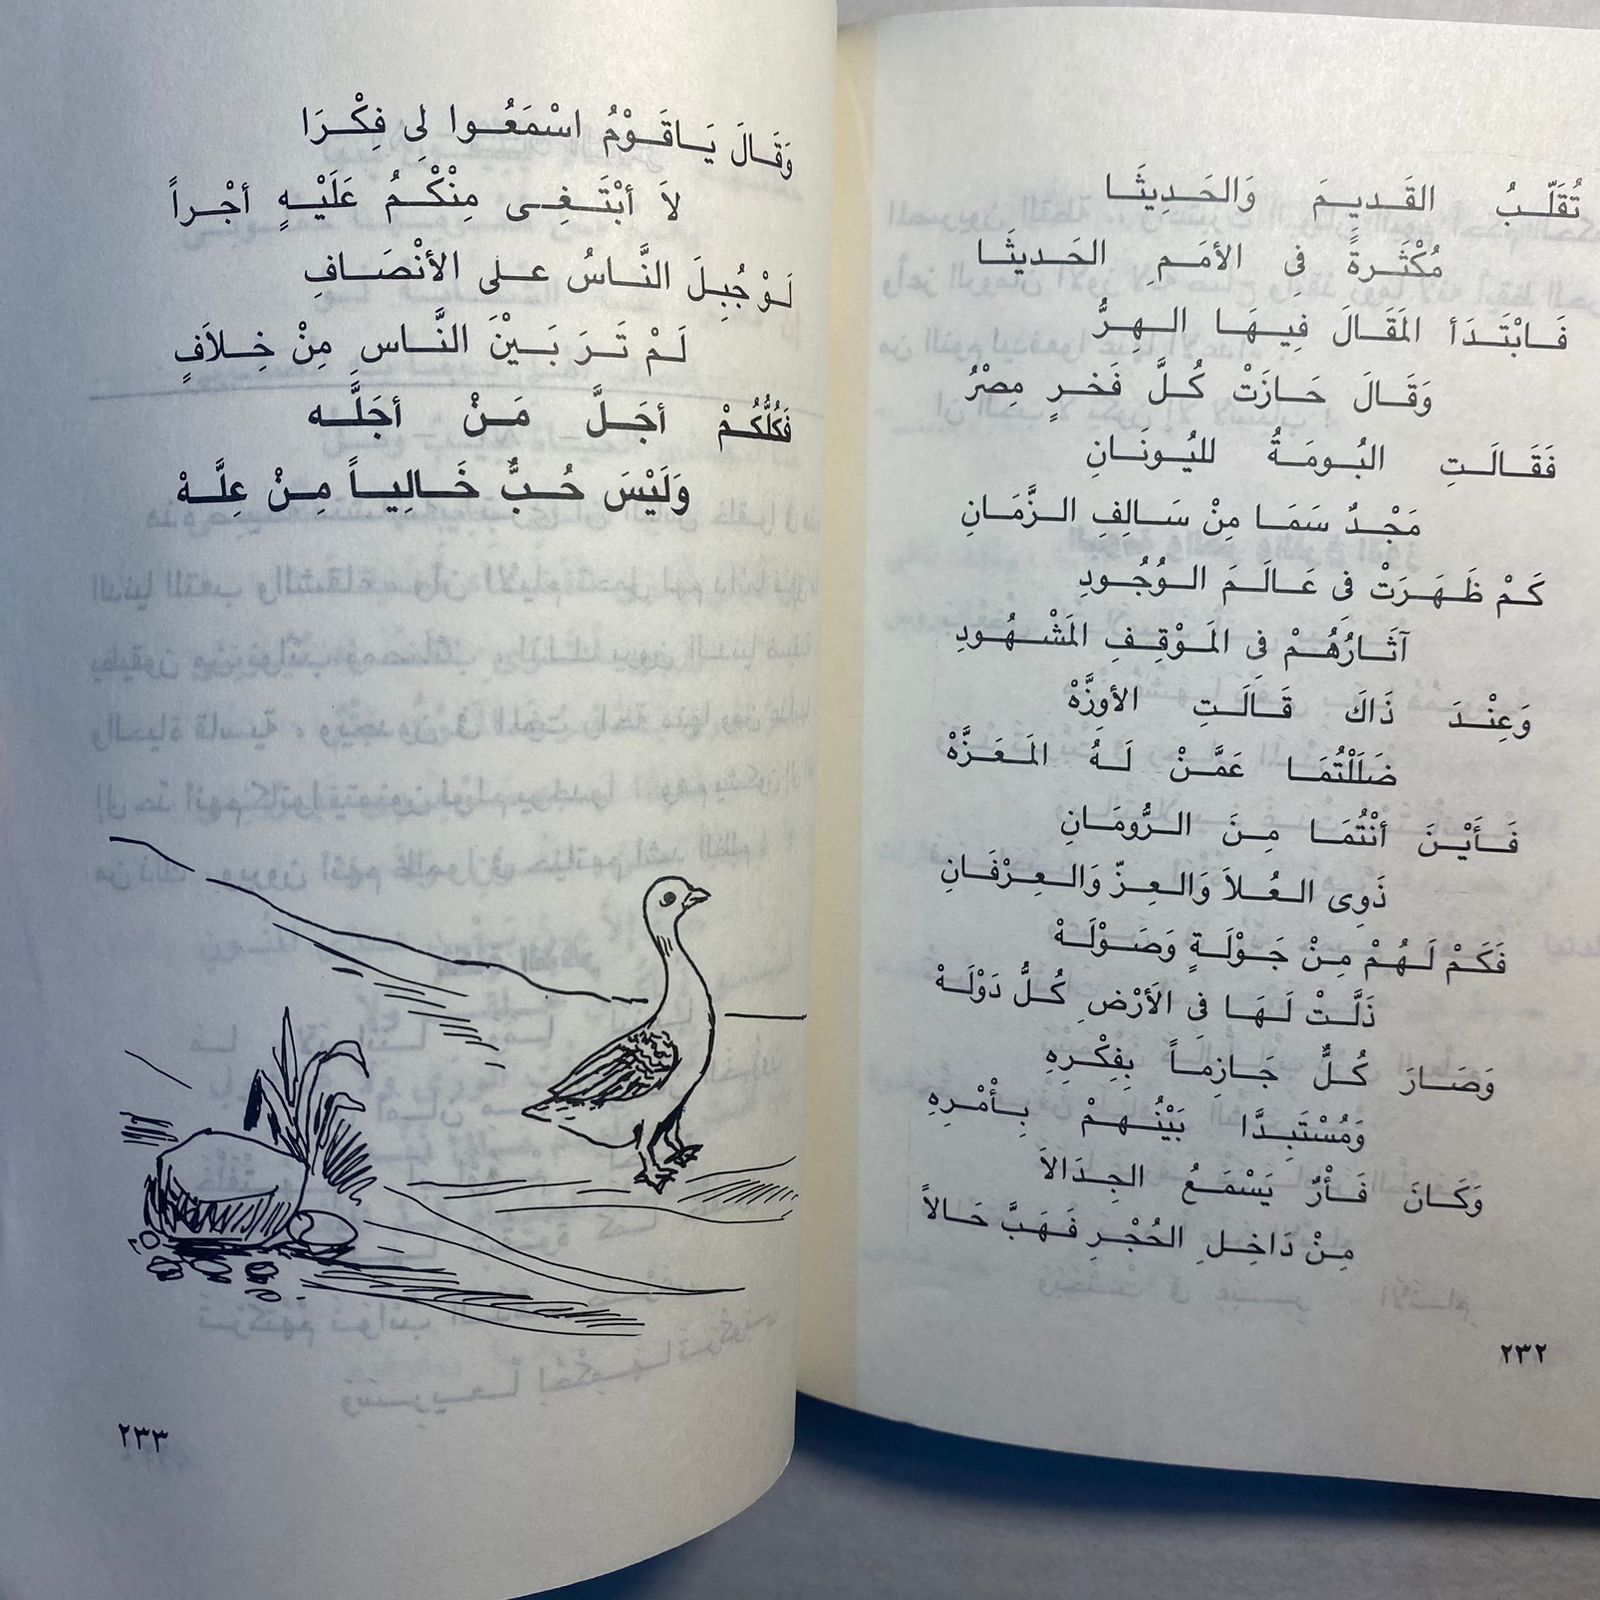 تُقَلِّبُ القَدِيمَ وَالحَدِيثَا
مُكْثَرةً فِى الأمَمِ الحَديثَا
فَابْتَدَأ المَقَالَ فِيهَا الهِرُّ
وَقَالَ حَازَتْ كُلَّ فَخرٍ مِصْرُ
فَقَالَتِ البُومَةُ لليُونَانِ
مَجْدٌ سَمَا مِنْ سَالِفِ الزَّمَانِ
كَمْ ظَهَرَتْ فِى عَالَمَ الوُجُودِ
آثَارُهُمْ فِى المَوْقِفِ المَشْهُودِ
وَعِنْدَ ذَاكَ قَالَتِ الأوِزَّهْ
ضَلَلْتُمَا عَمَّنْ لَهُ المَعَزَّهْ
فَأيْنَ أنْتُمَا مِنَ الرُّومَانِ
ذَوِى العُلاَ وَالعِزّ وَالعِرْفَانِ
فَكَمْ لَهُمْ مِنْ جَوْلَةٍ وَصَوْلَهْ
ذَلَّتْ لَهَا فِى الأَرْضِ كُلُّ دَوْلَهْ
وَصَارَ كُلٌّ جَازِماً بِفِكْرِهِ
وَمُسْتَبِدَّا بَيْنُهمْ بِأمْرِهِ
وَكَانَ فَأرٌ يَسْمَعُ الجِدَالاَ
مِنْ دَاخِلِ الحُجْرِ فَهَبَّ حَالاً
٢٣٢
وَقَالَ يَاقَوْمُ اسْمَعُوا لِى فِكْرَا
لاَ أبْتَغِى مِنْكْمُ عَلَيْهٍ أجْراً
لَوْ جُبِلَ النَّاسُ على الأنْصَافِ
لَمْ تَرَ بَيْنَ النَّاسِ مِنْ خِلاَفٍ
فَكُلُّكُمْ أجَلَّ مَنْ أجَلَّه
وَلَيْسَ حُبٌّ خَالِياً مِنْ عِلَّهْ
٢٣٣